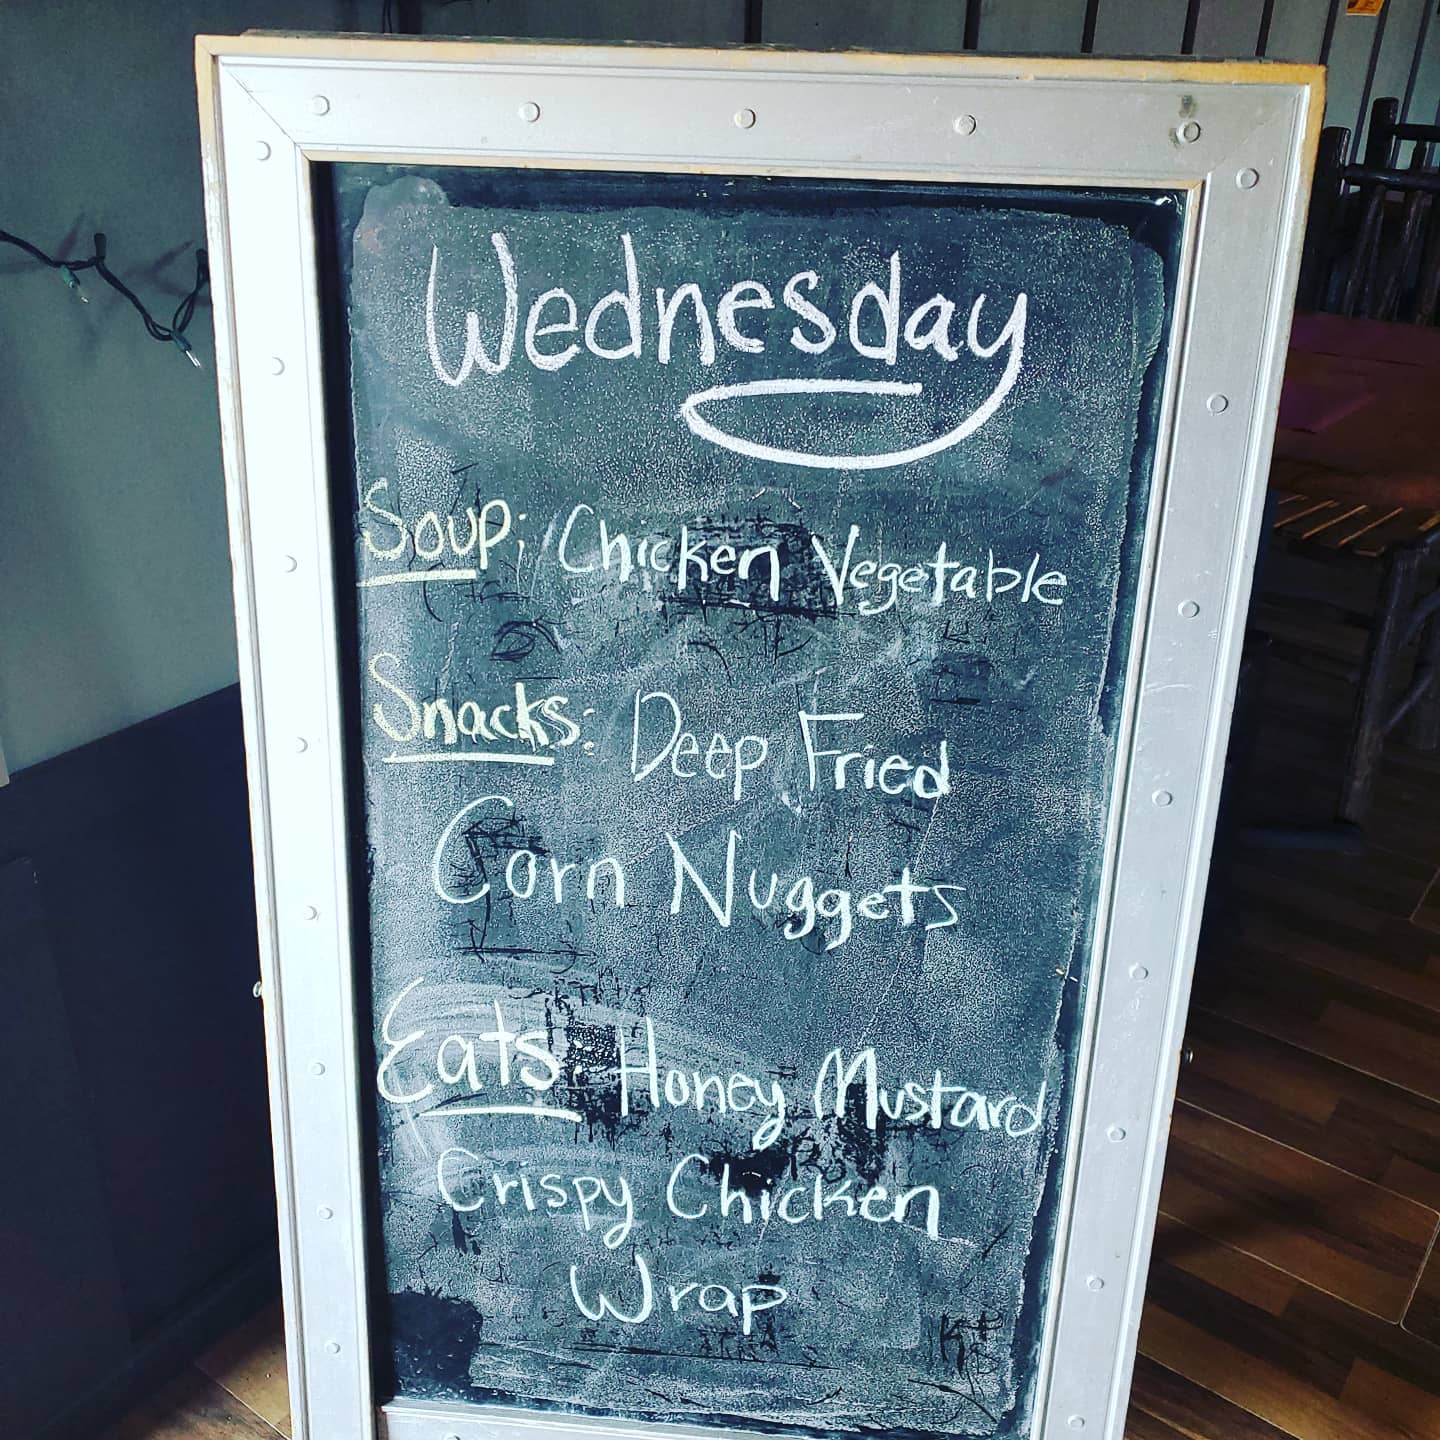 Wednesday
Soup: Chicken Vegetable
Snacks: Deep Fried
Corn Nuggets
Eats: Honey Mustard
Crispy Chicken
Wrap